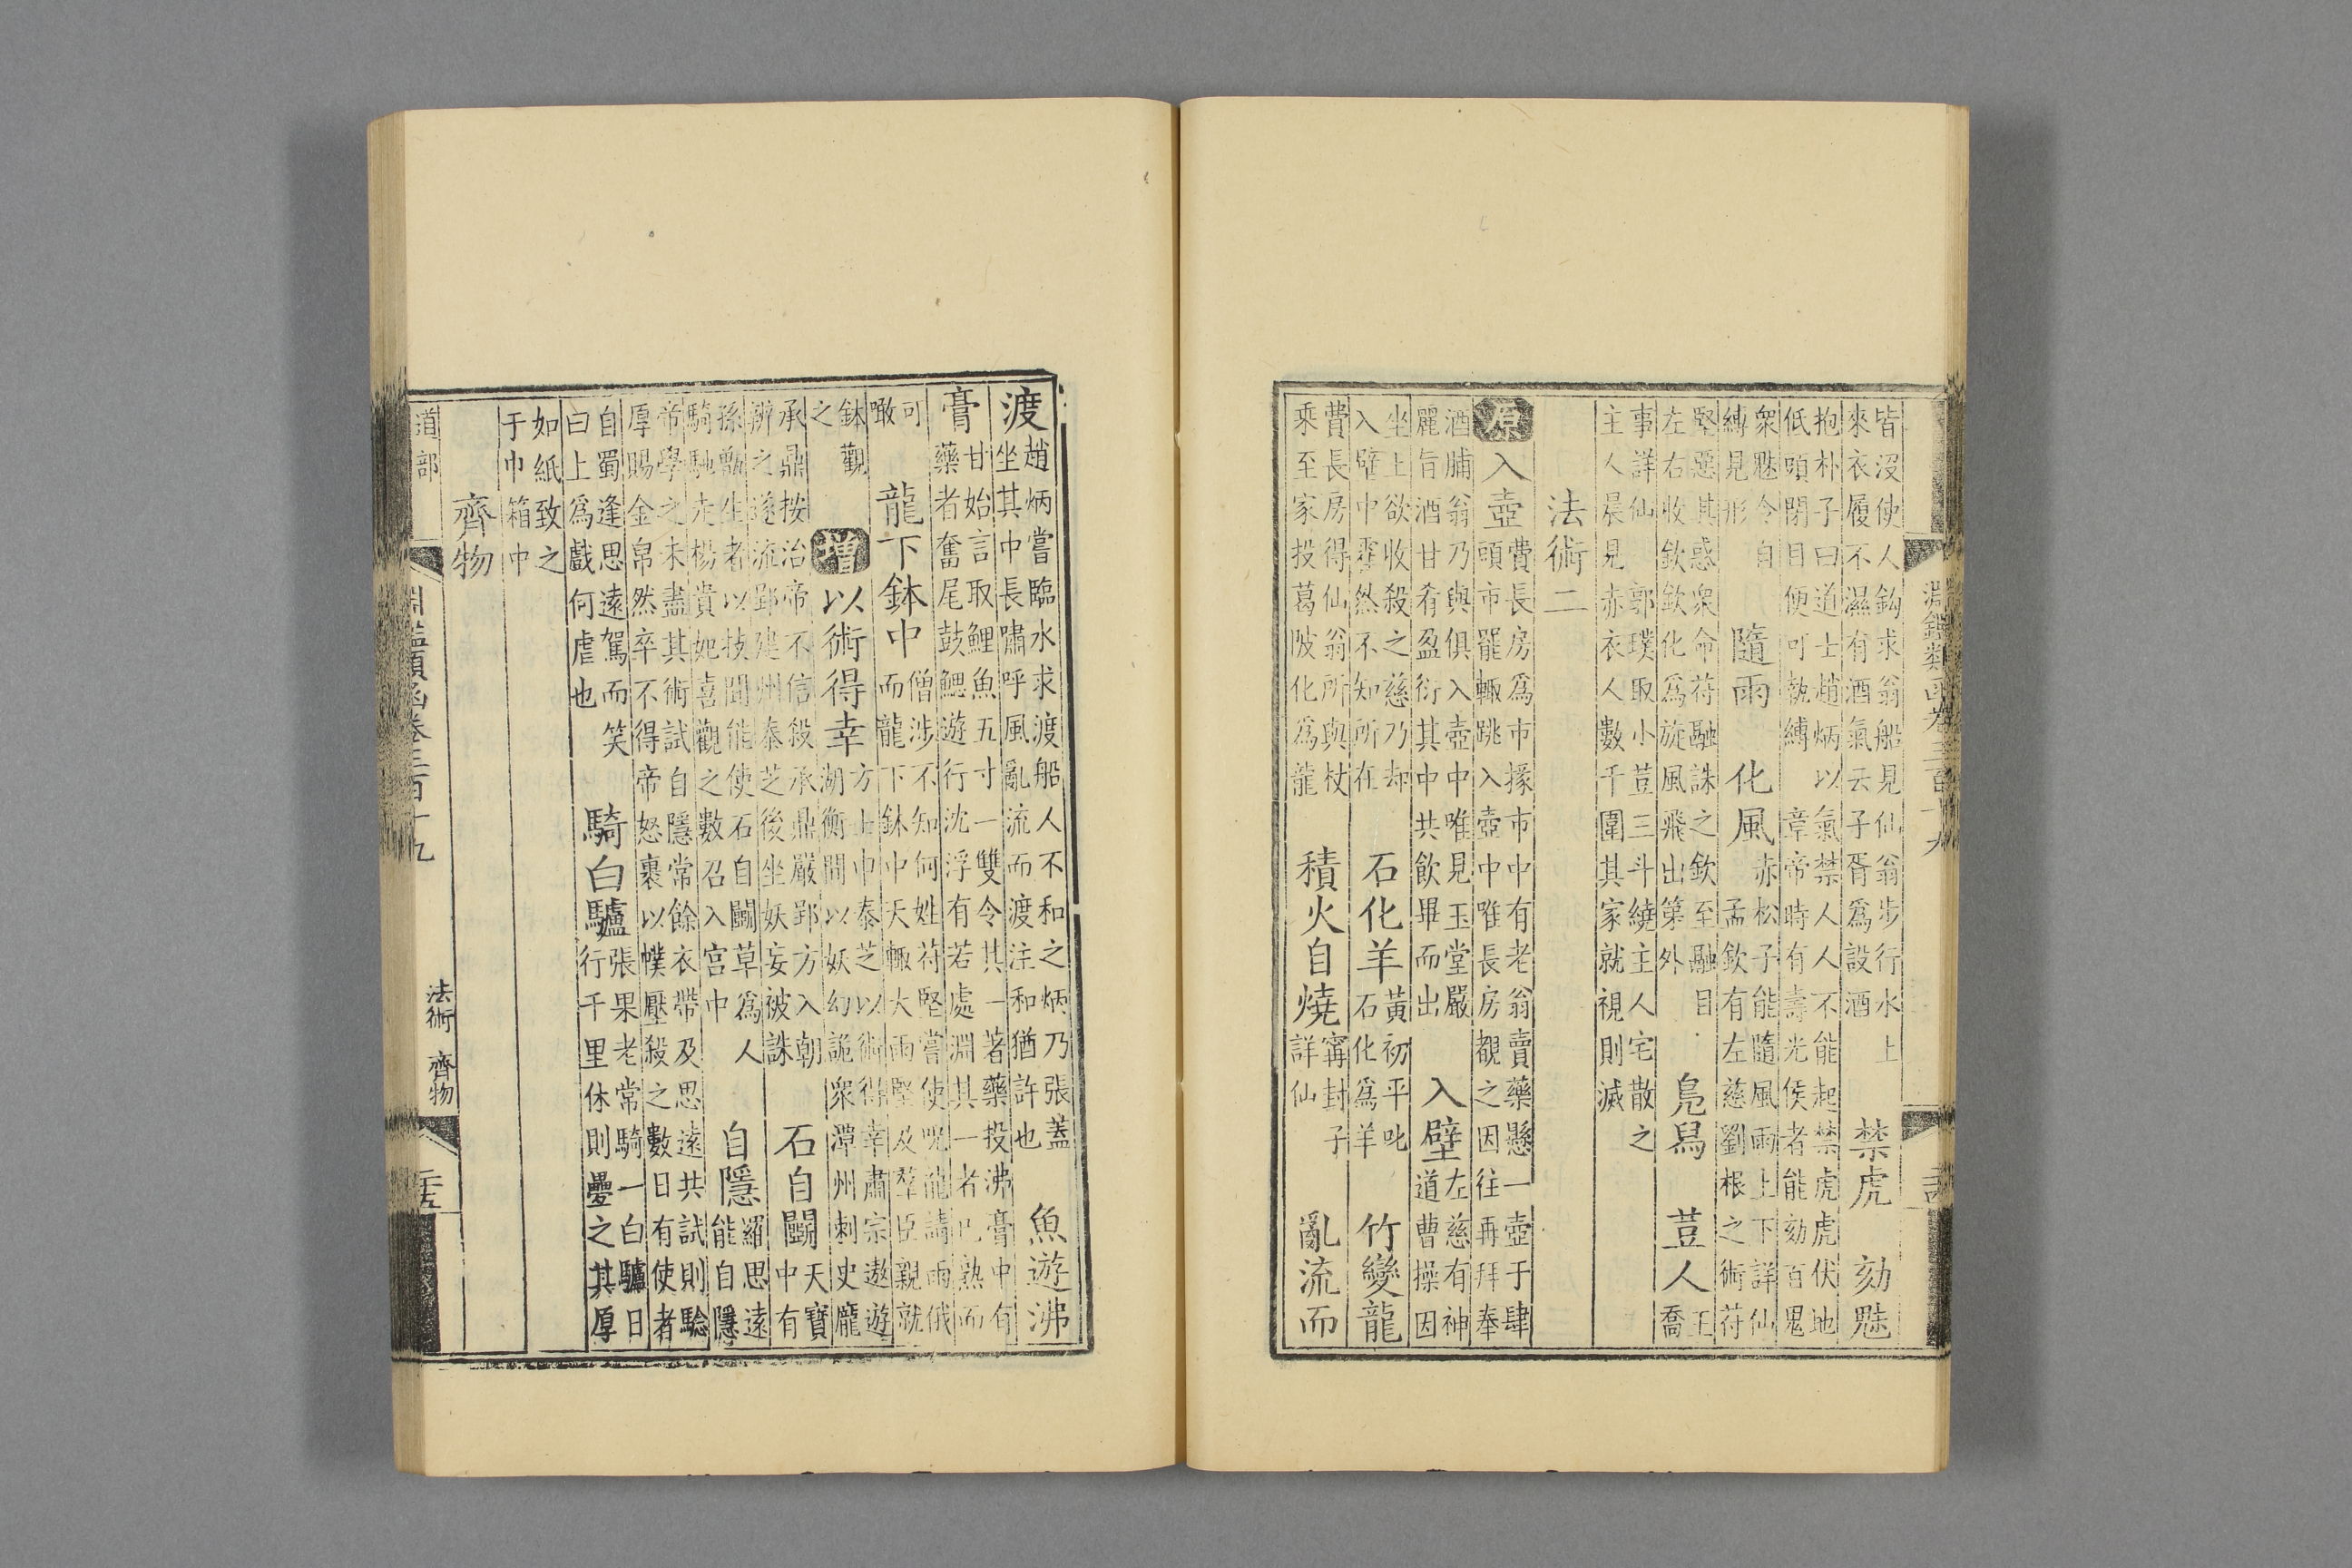 淵鑑類函卷三百十九
皆沒使人鈎求翁船見仙翁步行水上
來衣履不濕有酒氣云子胥爲設酒
禁虎
劾魅
抱朴子曰道士趙炳以氣禁人人不能起禁虎虎伏地
低頭閉目便可執縛
章帝時有壽光侯者能劾百鬼
衆魅令自
縛見形
隨雨
化風
赤松子能隨風雨上下詳仙
孟欽有左慈劉根之術苻
堅惡其惑衆命苻融誅之欽至融目
左右收欽欽化爲旋風飛出第外
鳧舄
荳人
王
喬
事詳仙
郭璞取小荳三斗繞主人宅散之
主人晨見赤衣人數千圍其家就視則滅
法術二
原
入壺
費長房爲市掾市中有老翁賣藥懸一壺于肆
頭市罷輒跳入壺中唯長房覩之因往再拜奉
酒脯翁乃與俱入壺中唯見玉堂嚴
麗旨酒甘肴盈衍其中共飲畢而出
入壁
左慈有神
道曹操因
坐上欲收殺之慈乃却
入壁中霍然不知所在
石化羊
黃初平叱
石化爲羊
竹變龍
費長房得仙翁所與杖
乘至家投葛陂化爲龍
積火自燒
甯封子
詳仙
亂流而
渡
趙炳嘗臨水求渡船人不和之炳乃張蓋
坐其中長嘯呼風亂流而渡注和猶許也
魚遊沸
膏
甘始言取鯉魚五寸一雙令其一著藥投沸膏中有
藥者奮尾鼓鰓遊行沈浮有若處淵其一者已熟而
可
噉
龍下鉢中
僧涉不知何姓苻堅嘗使呪龍請雨俄
而龍下鉢中天輒大雨堅及羣臣親就
鉢觀
之
增
以術得幸
方士申泰芝以術得幸肅宗遨遊
湖衡間以妖幻詭衆潭州刺史龐
承鼎按治帝不信殺承鼎嚴郢方入朝
辨之遂流郢建州泰芝後坐妖妄被誅
石自鬭
天寶
中有
孫甑生者以技聞能使石自鬭草爲人
騎馳走楊貴妃喜觀之數召入宮中
自隱
羅思遠
能自隱
帝學之未盡其術試自隱常餘衣帶及思遠共試則驗
厚賜金帛然卒不得帝怒裹以幞壓殺之數日有使者
自蜀逢思遠駕而笑
曰上爲戲何虐也
騎白驢
張果老常騎一白驢日
行千里休則疊之其厚
如紙致之
于巾箱中
齊物
道部
淵鑑類函卷三百十九
法術 齊物
二五